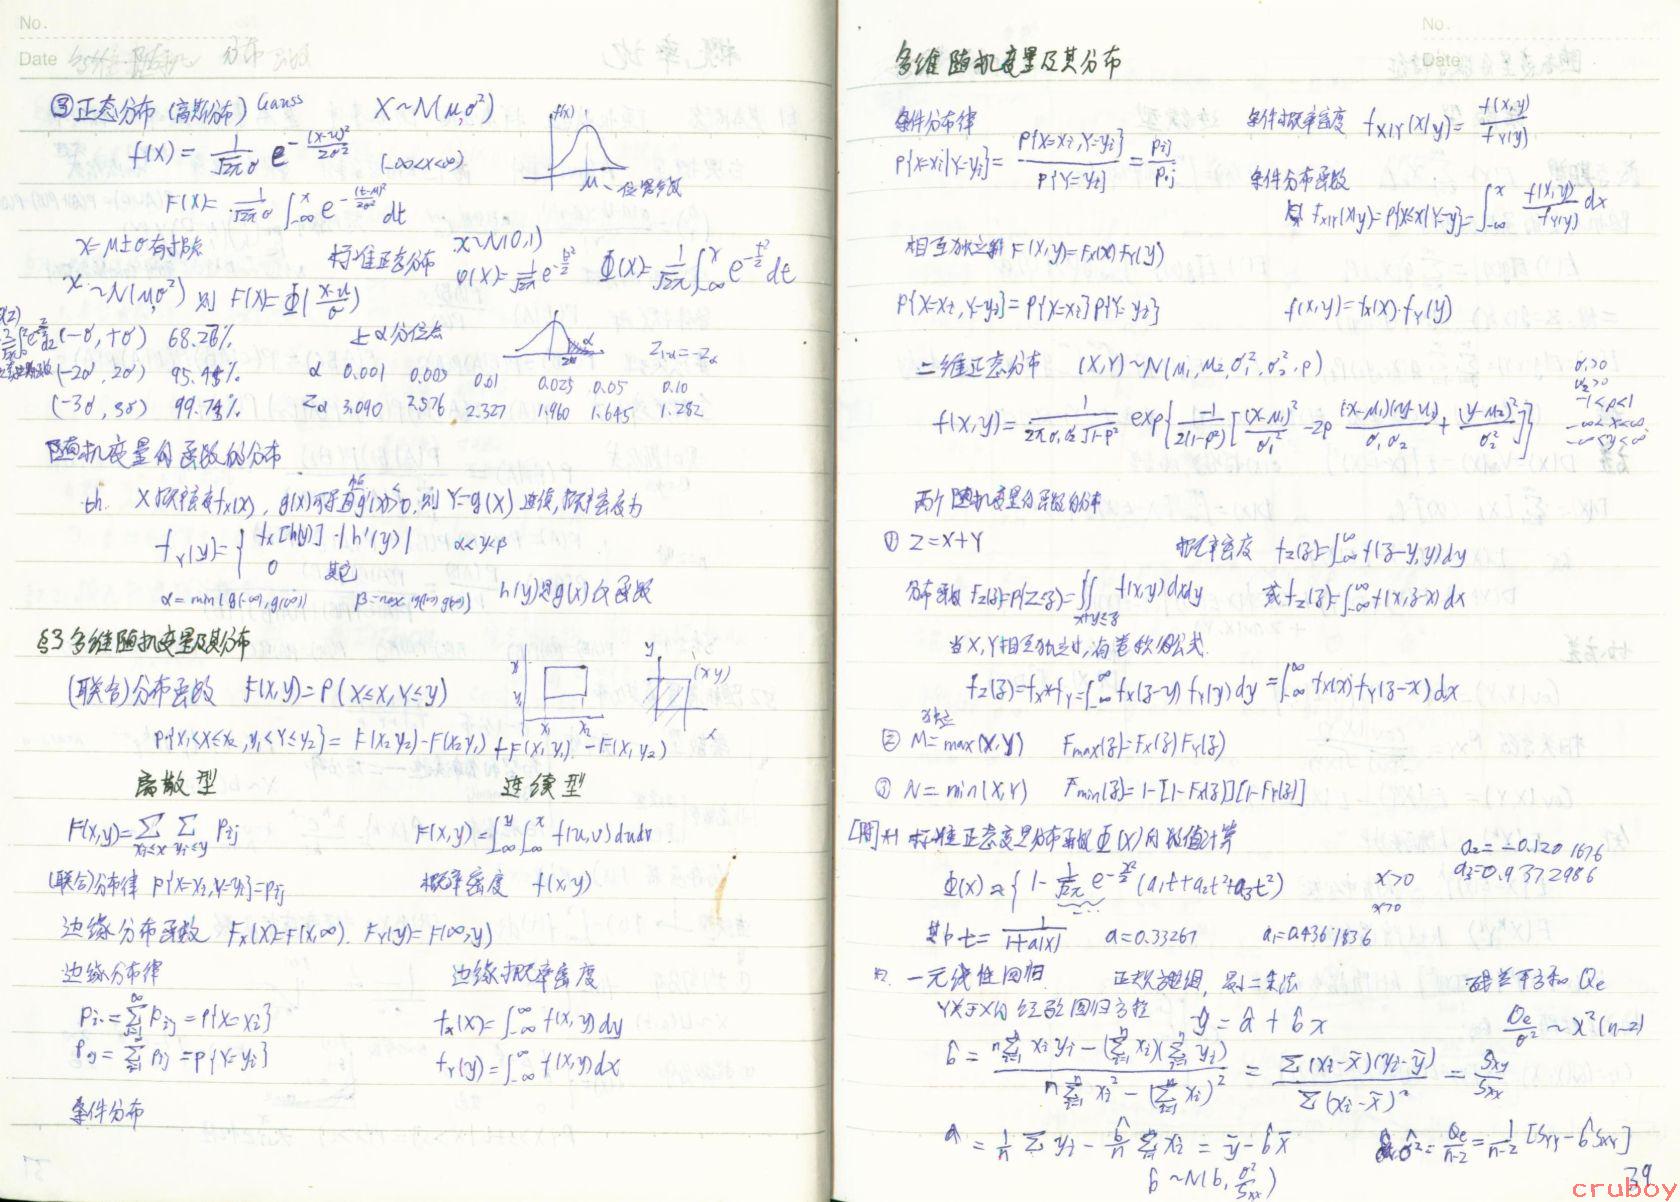 No.
Date
③正态分布 (高斯分布) Gauss X~N(μ,σ²)
f(x) = 1/(√2π σ) e^{-(x-μ)²/2σ²} (-∞<x<∞)
f(x)
μ 位置参数
F(x)= 1/(√2π σ) ∫_{-∞}^{x} e^{-(t-μ)²/2σ²} dt
x=μ±σ有拐点 标准正态分布 X~N(0,1)
φ(x)= 1/√2π e^{-x²/2} Φ(x)= 1/√2π ∫_{-∞}^{x} e^{-t²/2} dt
X~N(μ,σ²) 则 F(x)=Φ((x-μ)/σ)
(-σ, +σ) 68.26% 上α分位点 α Z_{1-α}=-Z_α
(-2σ, 2σ) 95.45% α 0.001 0.005 0.01 0.025 0.05 0.10
(-3σ, 3σ) 99.74% Zα 3.090 2.576 2.327 1.960 1.645 1.282
随机变量的函数的分布
th. X概率密度f_X(x), g(x)可导且g'(x)>0, 则 Y=g(X) 连续, 概率密度为
f_Y(y)= { f_X[h(y)]·|h'(y)| α<y<β
0 其它
α=min(g(-∞),g(∞)) β=max(g(-∞),g(∞)) h(y)是g(x)反函数
§3 多维随机变量及其分布
(联合)分布函数 F(x,y)=P(X≤x,Y≤y)
y (x,y)
x₁ x₂ x
P{x₁<X≤x₂, y₁<Y≤y₂} = F(x₂,y₂)-F(x₂,y₁)+F(x₁,y₁)-F(x₁,y₂)
离散型 连续型
F(x,y)=∑_{xi≤x} ∑_{yi≤y} Pij F(x,y)=∫_{-∞}^{y}∫_{-∞}^{x} f(u,v)dudv
(联合)分布律 P{X=xi,Y=yj}=Pij 概率密度 f(x,y)
边缘分布函数 F_X(x)=F(x,∞). F_Y(y)=F(∞,y)
边缘分布律 边缘概率密度
Pi·=∑Pij=P{X=xi} f_X(x)=∫_{-∞}^{∞} f(x,y)dy
P·j=∑Pij=P{Y=yi} f_Y(y)=∫_{-∞}^{∞} f(x,y)dx
条件分布
No.
Date
多维随机变量及其分布
条件分布律 条件概率密度 f_{X|Y}(x|y)= f(x,y)/f_Y(y)
P{X=xi|Y=yi}= P{X=xi,Y=yi}/P{Y=yi} = Pij/P·j
条件分布函数
F_{X|Y}(x|y)=P{X≤x|Y=y}=∫_{-∞}^{x} f(x,y)/f_Y(y) dx
相互独立 F(x,y)=F_X(x)F_Y(y)
P{X=xi,Y=yi}=P{X=xi}P{Y=yi} f(x,y)=f_X(x)·f_Y(y)
二维正态分布 (X,Y)~N(μ₁,μ₂,σ₁²,σ₂²,ρ)
σ₁>0
σ₂>0
-1<ρ<1
-∞<x<∞
-∞<y<∞
f(x,y)= 1/(2πσ₁σ₂√1-ρ²) exp{ -1/(2(1-ρ²)) [ (x-μ₁)²/σ₁² -2ρ (x-μ₁)(y-μ₂)/(σ₁σ₂) + (y-μ₂)²/σ₂² ] }
两个随机变量的函数的分布
① Z=X+Y 概率密度 f_Z(z)=∫_{-∞}^{∞} f(z-y,y)dy
分布函数 F_Z(z)=P{Z≤z}=∬_{x+y≤z} f(x,y)dxdy 或 f_Z(z)=∫_{-∞}^{∞} f(x,z-x)dx
当X,Y相互独立时,有卷积公式.
f_Z(z)=f_X*f_Y=∫_{-∞}^{∞} f_X(z-y)f_Y(y)dy=∫_{-∞}^{∞} f_X(x)f_Y(z-x)dx
独立
② M=max(X,Y) Fmax(z)=F_X(z)F_Y(z)
③ N=min(X,Y) Fmin(z)=1-[1-F_X(z)][1-F_Y(z)]
[附] 标准正态变量分布函数Φ(x)的数值计算
a₂=-0.1201676
a₃=0.9372986
Φ(x)≈{ 1- 1/√2π e^{-x²/2}(a₁t+a₂t²+a₃t²) x>0
x>0
其中 t= 1/(1+a(x)) a=0.33267 a₁=0.4361836
一元线性回归 正规方程组, 最小二乘法 残差平方和 Qe
Y关于X的经验回归方程 ŷ=â+b̂x Qe/σ²~χ²(n-2)
b̂ = [n∑xiyi-(∑xi)(∑yi)] / [n∑xi²-(∑xi)²] = ∑(xi-x̄)(yi-ȳ)/∑(xi-x̄)² = Sxy/Sxx
â = 1/n ∑yi - b̂/n ∑xi = ȳ-b̂x̄ σ̂²=Qe/(n-2)=1/(n-2)[Syy-b̂Sxy]
b̂~N(b, σ²/Sxx)
39
cruboy